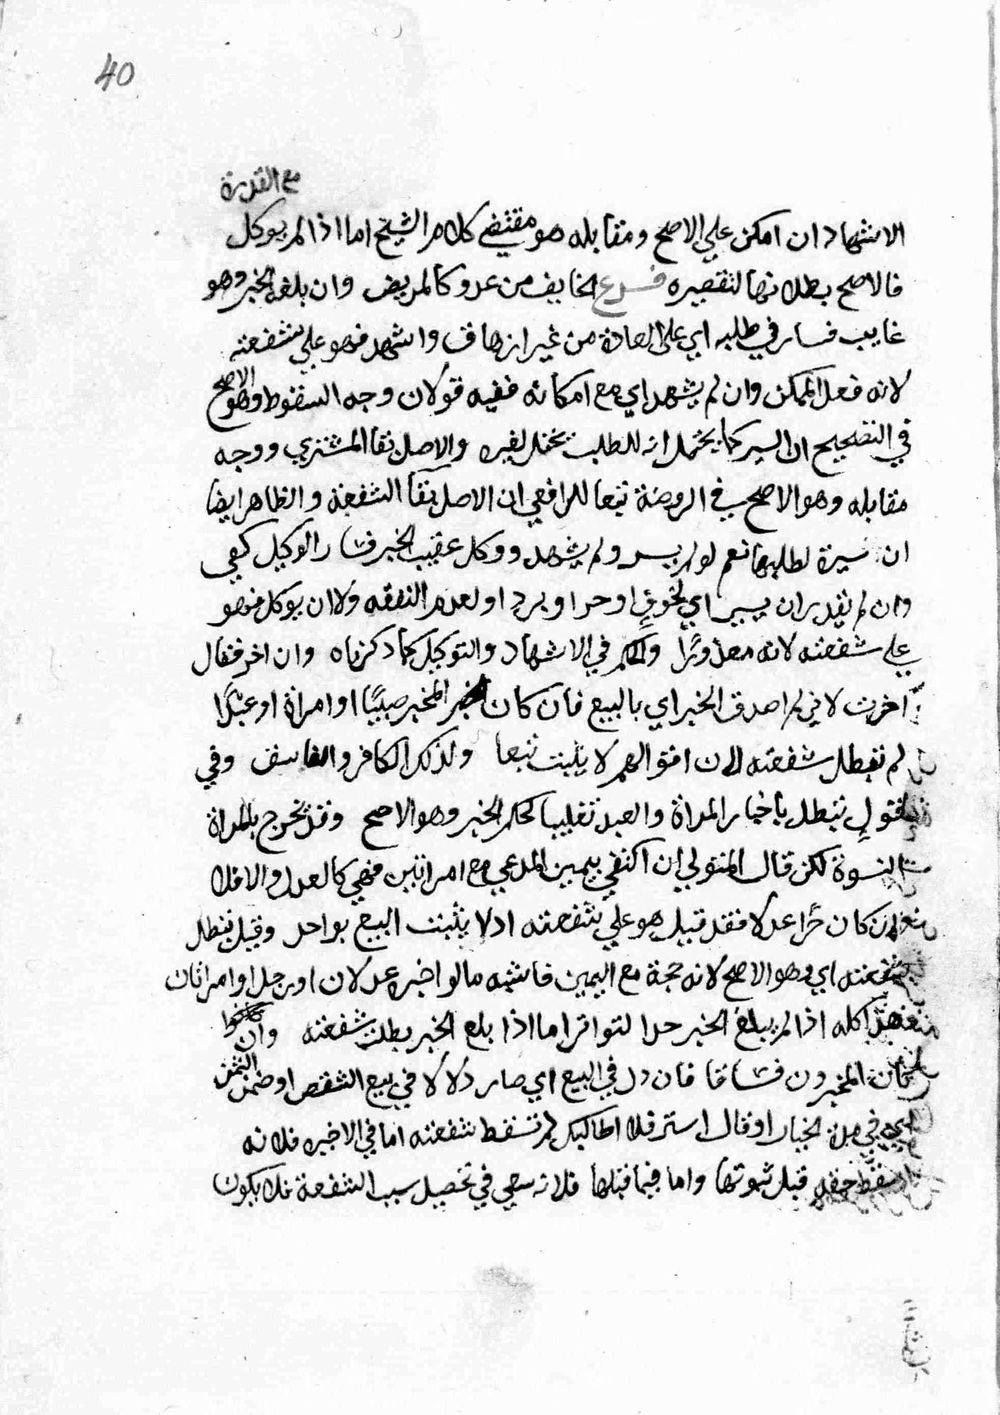 40
مع القدرة
الاشهاد ان امكن علي الاصح ومقابله هو مقتضي كلام الشيخ اما اذا لم يوكل
فالاصح بطلانها لتقصيره فرع الخايف من عدو كالمريض وان بلغه الخبر وهو
غايب فسار في طلبه اي على العادة من غير ازهاق واشهد فهو علي شفعته
لانه فعل الممكن وان لم يشهد اي مع امكانه ففيه قولان وجه السقوط وهو الاصح
في التصحيح ان السير كما يحتمل انه للطلب يحتمل لغيره والاصل بقا المشتري ووجه
مقابله وهو الاصح في الروضة تبعا للرافعي ان الاصل بقا الشفعة والظاهر ايضا
ان سيره لطلبها نعم لو لم يسر ولم يشهد ووكل عقيب الخبر فسار الوكيل كفي
وان لم يقدر ان يسير اي لخوف او حر او برد او لعدم النفقة ولا ان يوكل فهو
علي شفعته لانه معذور في الاشهاد والتوكيل كما ذكرناه وان اخر فقال
اخرت لاني لم اصدق الخبر اي بالبيع فان كان المخبر صبيًا او امراة او عبدًا
لم تبطل شفعته لان اقوالهم لا يثبت بيعا وكذلك الكافر والفاسق وفي
قول تبطل باخبار المراة والعبد تغليبا لحكم الخبر وهو الاصح وقد يخرج بالمراة
النسوة لكن قال المتولي ان اكتفي بيمين المدعي مع امراتين فهي كالعدل والا فلا
وان كان حرًا عدلا فقد قيل هو علي شفعته اذ لا يثبت البيع بواحد وقيل تبطل
شفعته اي وهو الاصح لانه حجة مع اليمين فاشبه ما لو اخبره عدلان او رجل وامراتان
هذا كله اذا لم يبلغ الخبر حد التواتر اما اذا بلغ الخبر بطلت شفعته وان كانوا
المخبرون فساقا فان دل في البيع اي صار دلالا في بيع الشقص او ضمن الثمن
اي في مدة الخيار او قال اشتر فلا اطالبك لم تسقط شفعته اما في الاخيرة فلانه
اسقط حقه قبل ثبوتها واما فيما قبلها فلانه سعي في تحصيل سبب الشفعة فلا يكون